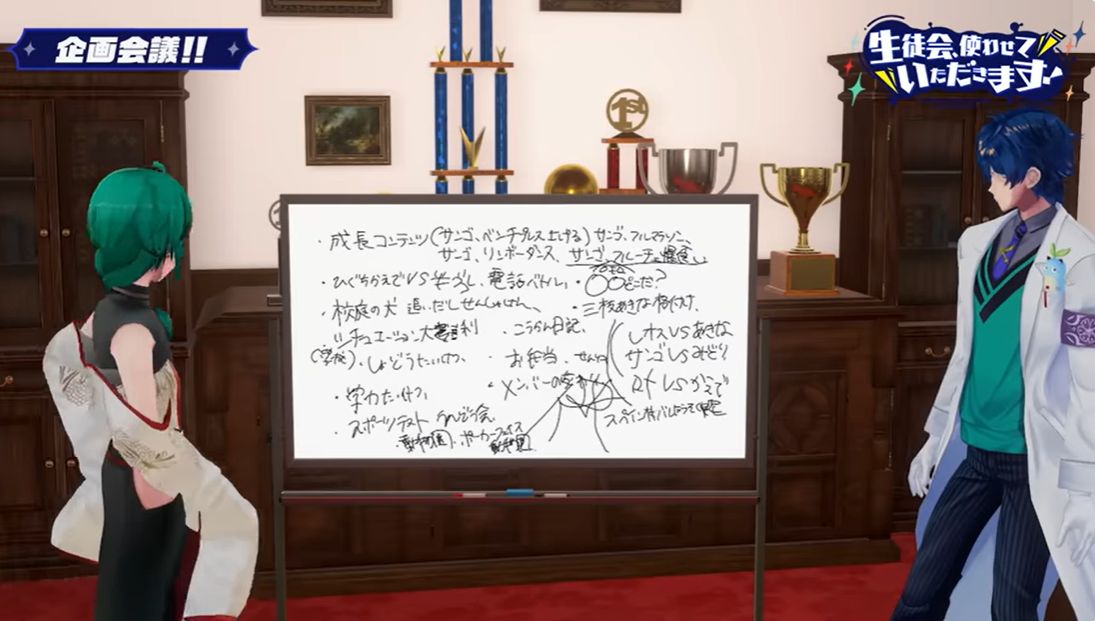 企画会議!!
生徒会、使わせて
いただきます!
1st
・成長コンテンツ(サンゴ、ベンチプレス上げる) サンゴ、フルマラソン、
サンゴ、リンボーダンス、サンゴ、フルーチェ爆食い
・ひぐちかえでVS 電話バトル、
・〇〇どこだ?
・校庭の犬 追いだしせんしゅけん、
・三枝あきな格付け、
シチュエーション大喜利
・こうかん日記、
レオスVSあきな
(学校)、しょどうたいけつ、
・お弁当、せんしゅ
サンゴVSみどり
・学力たいけつ、
・メンバーの
VSかえで
・スポーツテスト うんどう会、
スペイン村
・動物園、ポーカーフェイス
動物園